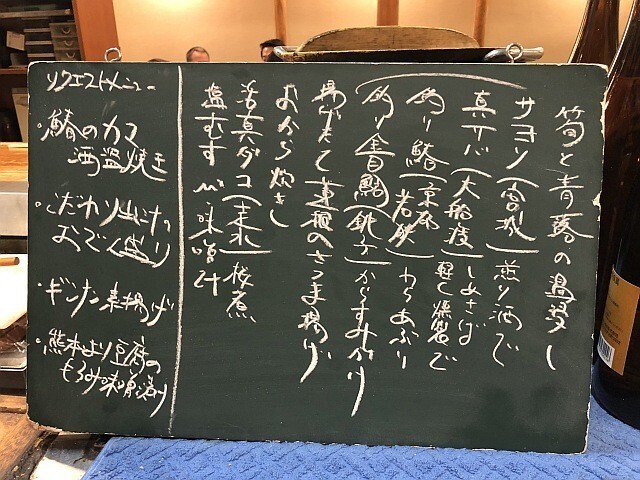 筍と青蕗の温浸し
サヨリ(宮城)煎り酒で
真サバ(大船渡)しめさば 軽く燻製で
釣り鰆(京都 岩鰆)わらあぶり
釣り金目鯛(銚子)からすみがけ
揚げたて蓮根のさつま揚げ
おから炊き
活真ダコ 桜煮
塩むすび 味噌汁
リクエストメニュー
・鰆のカマ
酒塩焼き
・こだわり出汁の
おでん盛り
・ギンナン素揚げ
・熊本より豆腐の
もろみ味噌漬け